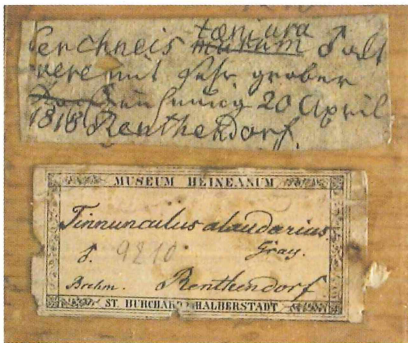 tæniura
Cerchneis murum ♂ alt
mit sehr grober
20 April
1818 Renthendorf.
MUSEUM HEINEANUM
Tinnunculus alaudarius
♂. 9210 Gray.
Brehm. Renthendorf
ST. BURCHARD HALBERSTADT